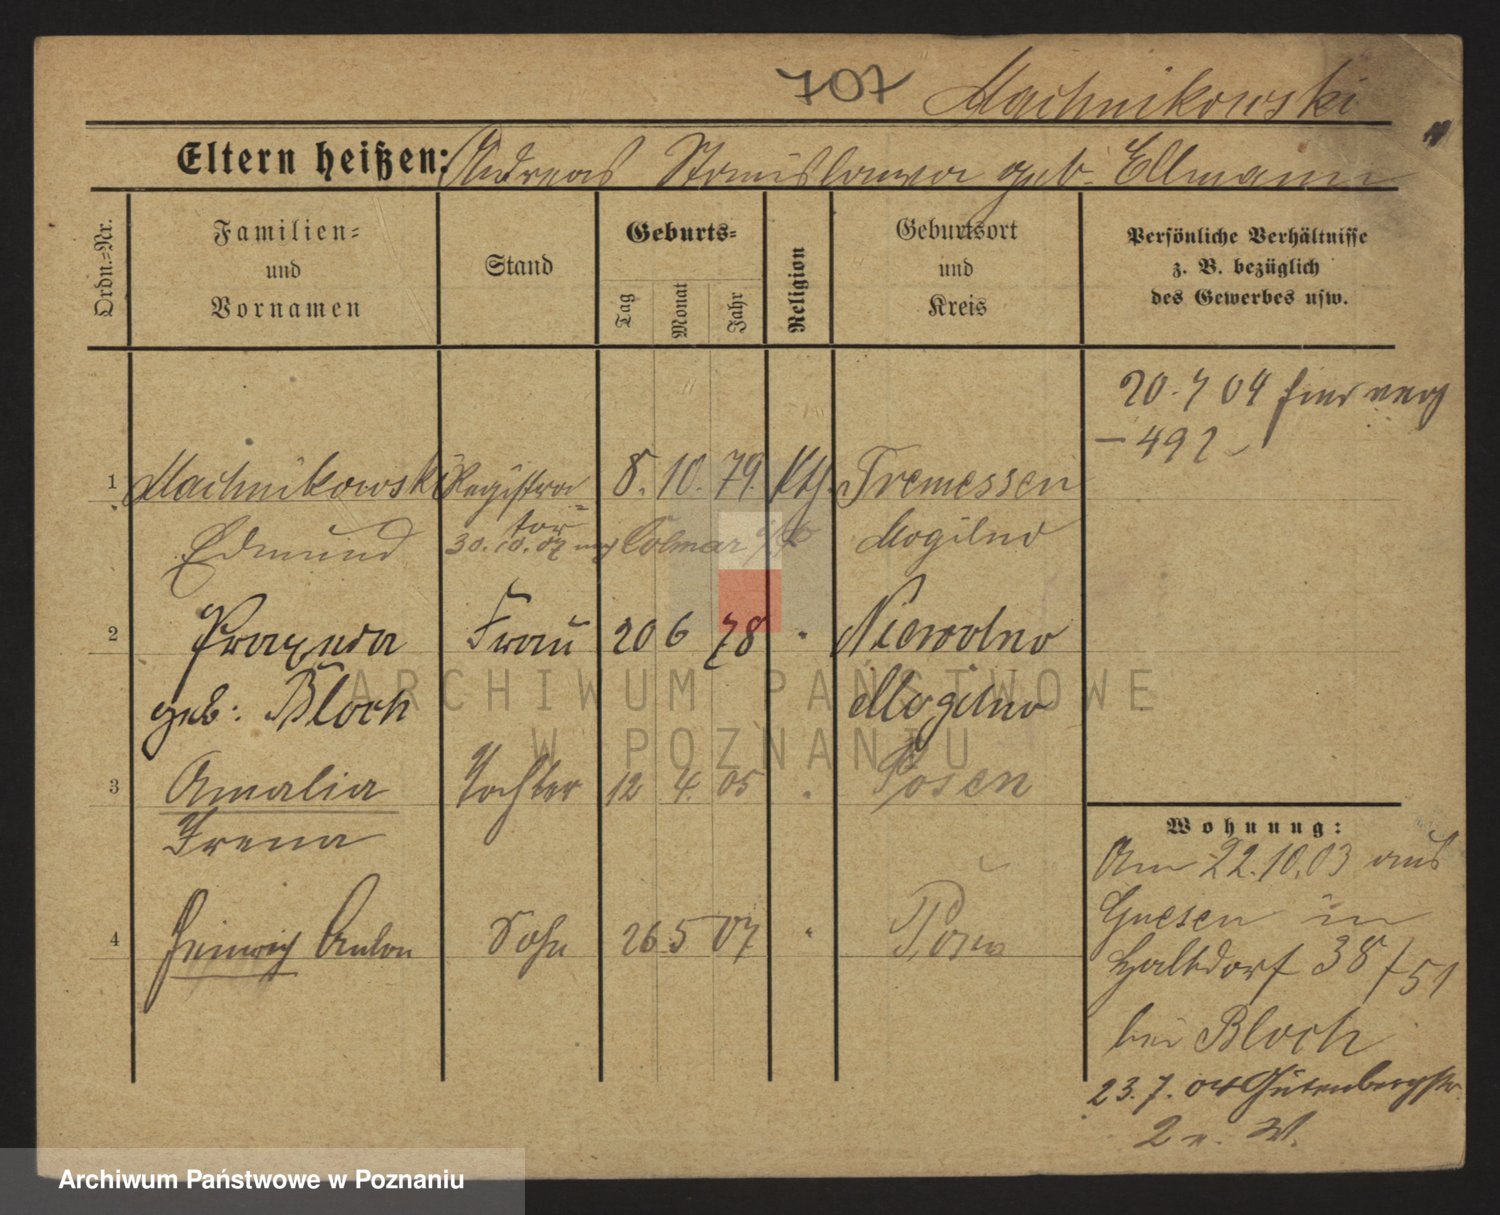 707 Machnikowski
Eltern heißen: Andreas Stanislawa geb. Ellmann
Ordn.-Nr.
Familien-
und
Vornamen
Stand
Geburts-
Tag
Monat
Jahr
Religion
Geburtsort
und
Kreis
Persönliche Verhältnisse
z. B. bezüglich
des Gewerbes usw.
20. 7 04
492
1 Machnikowski Registra- 8. 10. 79. Kth. Tremessen
Edmund tor Mogilno
30.10.07 Colmar
2 Praxeda Frau 20 6 78 " Niewolno
geb. Bloch Mogilno
3 Amalia Tochter 12 4. 05 " Posen
Irena
4 Heinrich Anton Sohn 26 5 07 " Posen
Wohnung:
Am 22.10.03 aus
Gnesen in
Halbdorf 38/51
bei Bloch
23.7.04 Gutenbergstr.
2 v. W.
ARCHIWUM PAŃSTWOWE
W POZNANIU
Archiwum Państwowe w Poznaniu